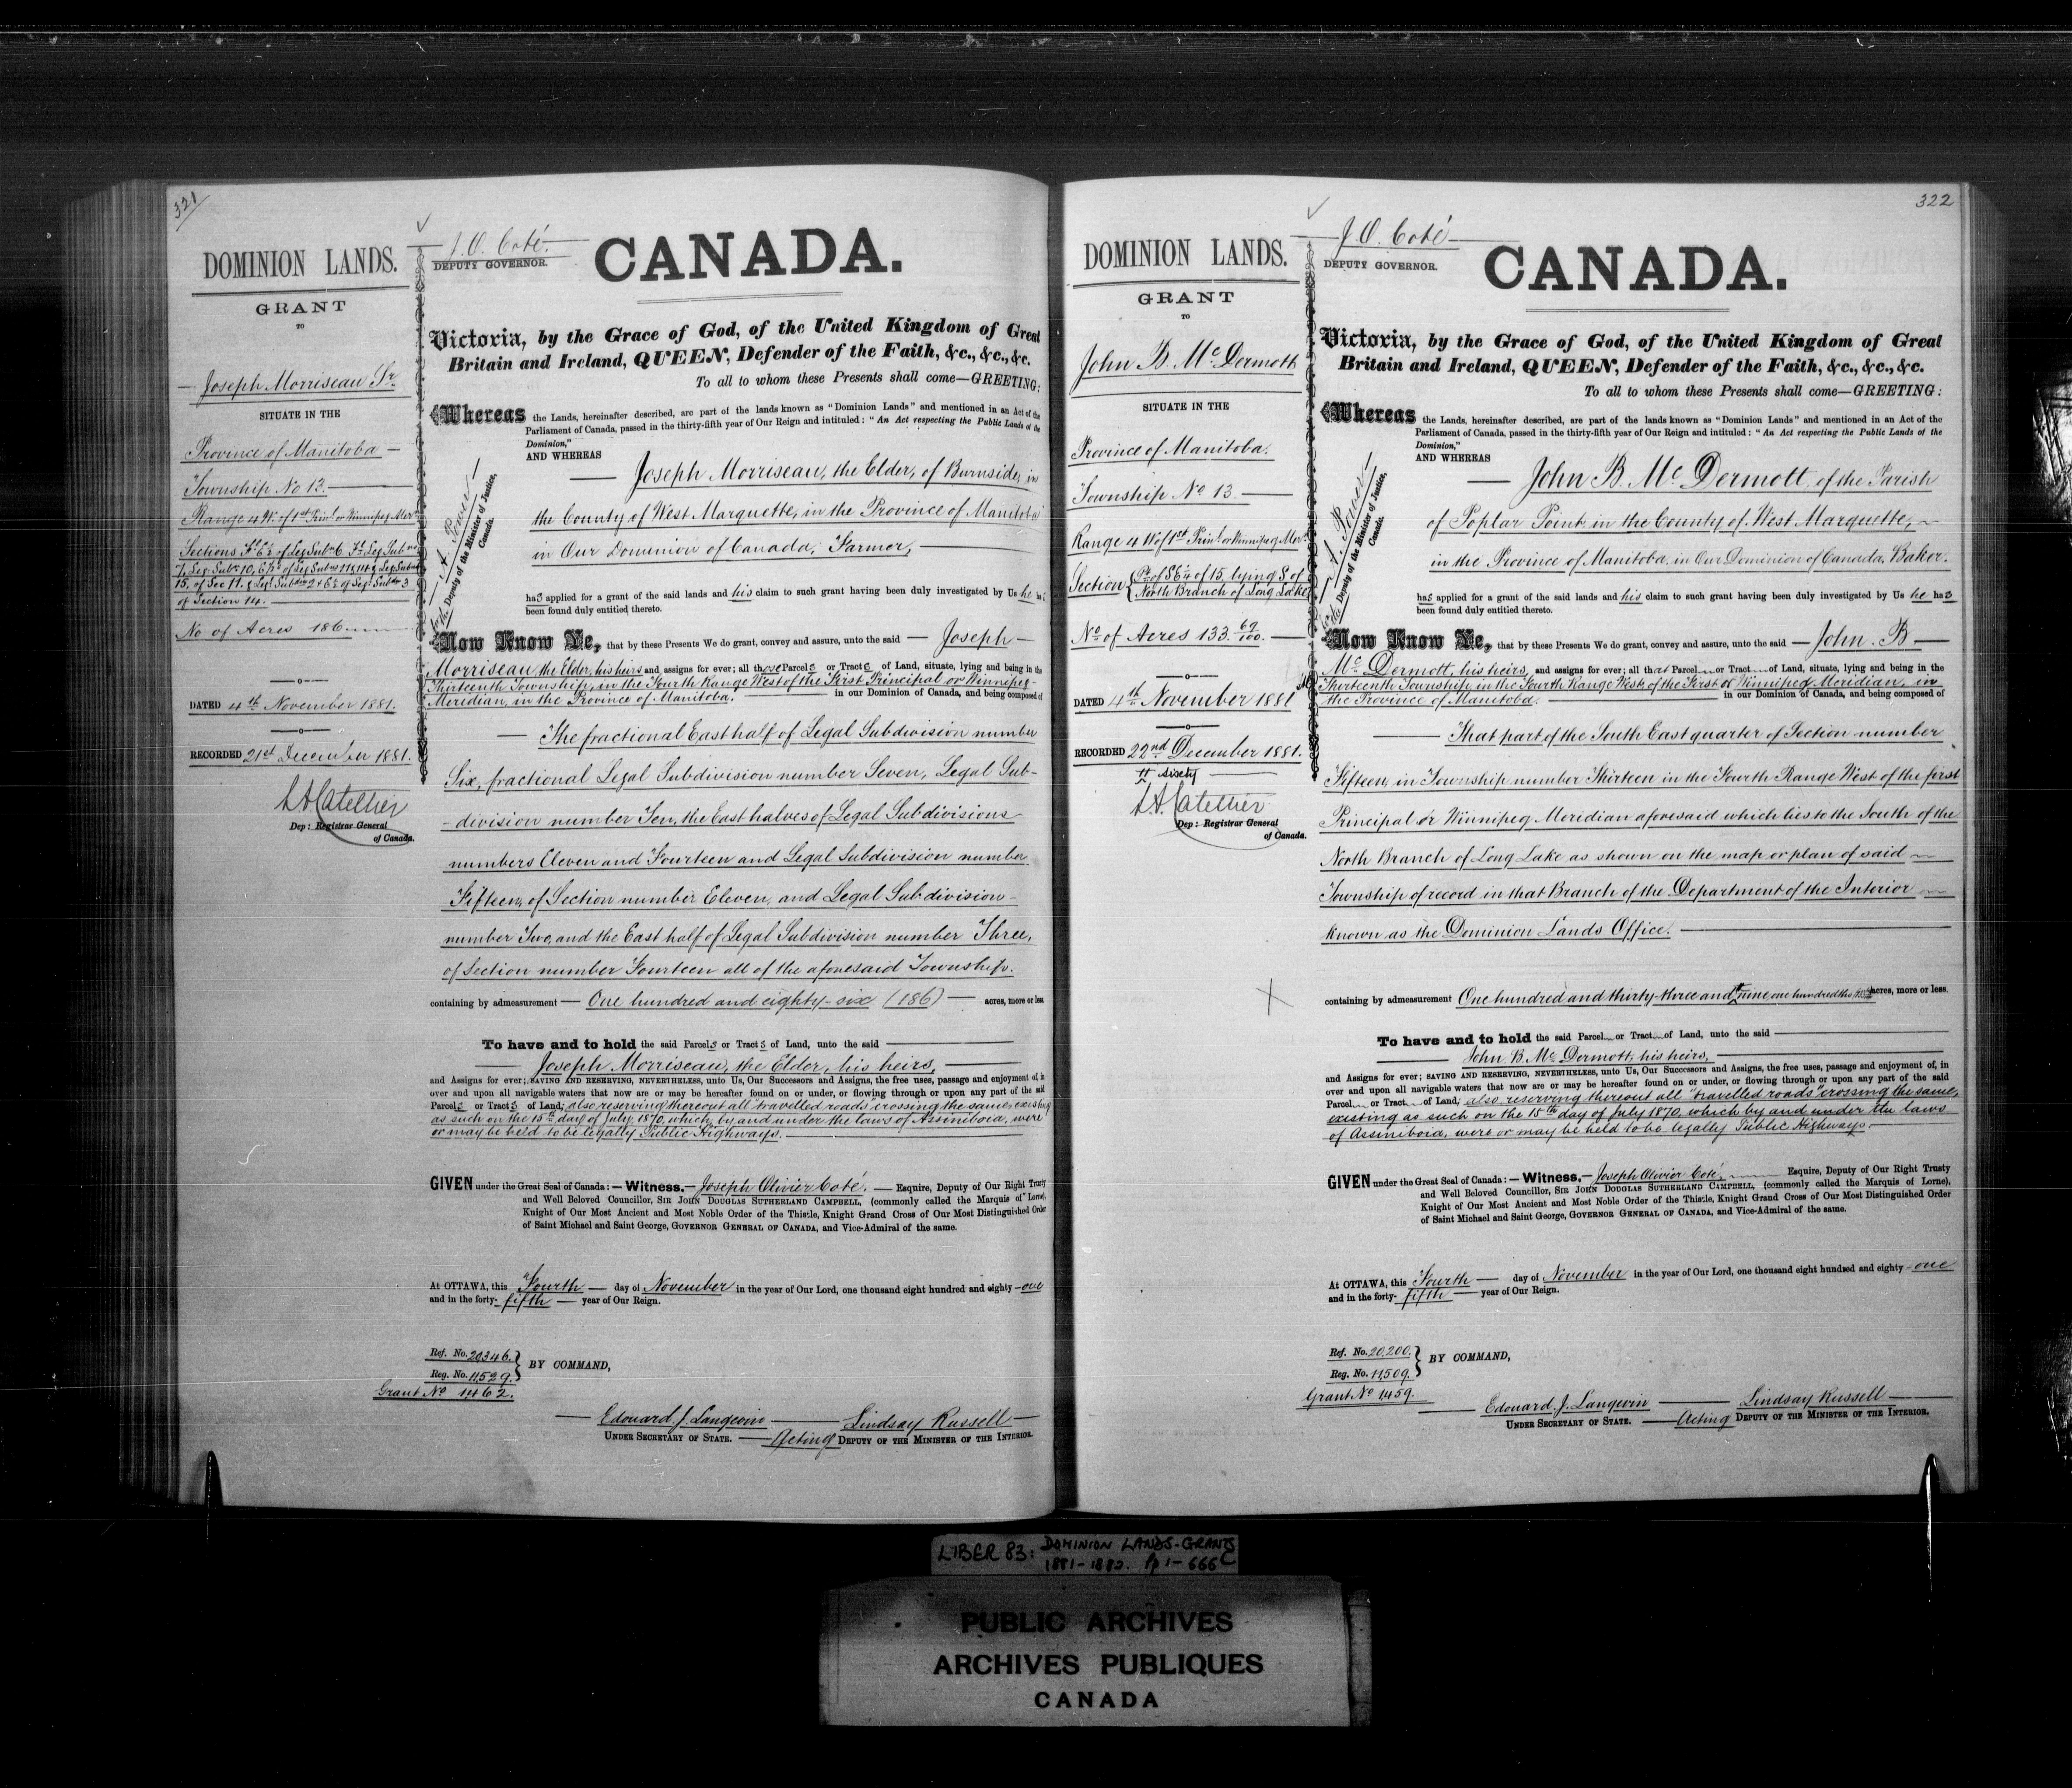 321
DOMINION LANDS.
GRANT
TO
Joseph Morriseau Sr.
SITUATE IN THE
Province of Manitoba
Township No 13.
Range 4 W. of 1st Prinl. or Winnipeg Mer.
Sections
7, Leg. Subn. 10, E ½s of Leg Subns 11 & 14 & Leg Subdn
15, of Sec 11. & Legl Subdns 2 & E ½ of Legl Subdn 3
of Section 14.
No of Acres 186.
DATED 4th November 1881.
RECORDED 21st December 1881.
L A Catellier
Dep: Registrar General
of Canada.
J. O. Coté.
DEPUTY GOVERNOR.
CANADA.
Victoria, by the Grace of God, of the United Kingdom of Great
Britain and Ireland, QUEEN, Defender of the Faith, &c., &c., &c.
To all to whom these Presents shall come—GREETING:
A. Power
for the Deputy of the Minister of Justice,
Canada.
Whereas the Lands, hereinafter described, are part of the lands known as "Dominion Lands" and mentioned in an Act of the
Parliament of Canada, passed in the thirty-fifth year of Our Reign and intituled: "An Act respecting the Public Lands of the
Dominion,"
AND WHEREAS
Joseph Morriseau, the Elder, of Burnside, in
the County of West Marquette, in the Province of Manitoba
in Our Dominion of Canada, Farmer,
has applied for a grant of the said lands and his claim to such grant having been duly investigated by Us he has
been found duly entitled thereto.
Now Know Ye, that by these Presents We do grant, convey and assure, unto the said — Joseph —
Morriseau, the Elder, his heirs and assigns for ever; all those Parcels or Tracts of Land, situate, lying and being in the
Thirteenth Township, in the Fourth Range West of the First Principal or Winnipeg
Meridian, in the Province of Manitoba. in our Dominion of Canada, and being composed of
The fractional East half of Legal Subdivision number
Six, fractional Legal Subdivision number Seven, Legal Sub-
-division number Ten, the East halves of Legal Subdivisions
numbers Eleven and Fourteen and Legal Subdivision number
Fifteen, of Section number Eleven, and Legal Subdivision
number Two, and the East half of Legal Subdivision number Three,
of Section number Fourteen all of the aforesaid Township.
containing by admeasurement — One hundred and eighty-six (186) — acres, more or less.
To have and to hold the said Parcels or Tracts of Land, unto the said
Joseph Morriseau, the Elder, his heirs,
and Assigns for ever; SAVING AND RESERVING, NEVERTHELESS, unto Us, Our Successors and Assigns, the free uses, passage and enjoyment of, in
over and upon all navigable waters that now are or may be hereafter found on or under, or flowing through or upon any part of the said
Parcels or Tracts of Land; also reserving thereout all travelled roads crossing the same, existing
as such on the 15th day of July, 1870, which, by and under the laws of Assiniboia, were
or may be held to be legally Public Highways.
GIVEN under the Great Seal of Canada: — Witness, — Joseph Olivier Coté. — Esquire, Deputy of Our Right Trusty
and Well Beloved Councillor, SIR JOHN DOUGLAS SUTHERLAND CAMPBELL, (commonly called the Marquis of Lorne),
Knight of Our Most Ancient and Most Noble Order of the Thistle, Knight Grand Cross of Our Most Distinguished Order
of Saint Michael and Saint George, GOVERNOR GENERAL OF CANADA, and Vice-Admiral of the same.
At OTTAWA, this Fourth — day of November in the year of Our Lord, one thousand eight hundred and eighty-one
and in the forty-fifth — year of Our Reign.
Ref. No. 20346.
Reg. No. 11,529.
BY COMMAND,
Grant No 1462.
Edouard J. Langevin — Lindsay Russell —
UNDER SECRETARY OF STATE. — Acting DEPUTY OF THE MINISTER OF THE INTERIOR.
322
DOMINION LANDS.
GRANT
TO
John B. McDermott
SITUATE IN THE
Province of Manitoba.
Township No 13
Range 4 W of 1st Prinl. or Winnipeg Mer.
Section { Pt. of S E ¼ of 15, lying S. of
North Branch of Long Lake
No of Acres 133. 69/100.
DATED 4th November 1881
RECORDED 22nd December 1881.
sixty
L. A. Catellier
Dep: Registrar General
of Canada.
J. O. Coté
DEPUTY GOVERNOR.
CANADA.
Victoria, by the Grace of God, of the United Kingdom of Great
Britain and Ireland, QUEEN, Defender of the Faith, &c., &c., &c.
To all to whom these Presents shall come—GREETING:
A. Power
for the Deputy of the Minister of Justice,
Canada.
Whereas the Lands, hereinafter described, are part of the lands known as "Dominion Lands" and mentioned in an Act of the
Parliament of Canada, passed in the thirty-fifth year of Our Reign and intituled: "An Act respecting the Public Lands of the
Dominion,"
AND WHEREAS
John B. McDermott, of the Parish
of Poplar Point in the County of West Marquette,
in the Province of Manitoba, in Our Dominion of Canada, Baker.
has applied for a grant of the said lands and his claim to such grant having been duly investigated by Us he has
been found duly entitled thereto.
Now Know Ye, that by these Presents We do grant, convey and assure, unto the said — John. B —
McDermott, his heirs, and assigns for ever; all that Parcel or Tract of Land, situate, lying and being in the
Thirteenth Township, in the Fourth Range West of the First or Winnipeg Meridian, in
the Province of Manitoba. in our Dominion of Canada, and being composed of
That part of the South East quarter of Section number
Fifteen, in Township number Thirteen in the Fourth Range West of the first
Principal or Winnipeg Meridian aforesaid which lies to the South of the
North Branch of Long Lake as shown on the map or plan of said
Township of record in that Branch of the Department of the Interior
known as the Dominion Lands Office.
containing by admeasurement One hundred and thirty-three and nine one hundredths acres, more or less.
To have and to hold the said Parcel or Tract of Land, unto the said
John B. McDermott, his heirs,
and Assigns for ever; SAVING AND RESERVING, NEVERTHELESS, unto Us, Our Successors and Assigns, the free uses, passage and enjoyment of, in
over and upon all navigable waters that now are or may be hereafter found on or under, or flowing through or upon any part of the said
Parcel or Tract of Land; also reserving thereout all "travelled roads" crossing the same,
existing as such on the 15th day of July 1870, which by and under the laws
of Assiniboia, were or may be held to be legally Public Highways.
GIVEN under the Great Seal of Canada: — Witness, — Joseph Olivier Coté, Esquire, Deputy of Our Right Trusty
and Well Beloved Councillor, SIR JOHN DOUGLAS SUTHERLAND CAMPBELL, (commonly called the Marquis of Lorne),
Knight of Our Most Ancient and Most Noble Order of the Thistle, Knight Grand Cross of Our Most Distinguished Order
of Saint Michael and Saint George, GOVERNOR GENERAL OF CANADA, and Vice-Admiral of the same.
At OTTAWA, this Fourth — day of November in the year of Our Lord, one thousand eight hundred and eighty-one
and in the forty-fifth — year of Our Reign.
Ref. No. 20,200.
Reg. No. 11,509.
BY COMMAND,
Grant No 1459.
Edouard J. Langevin — Lindsay Russell —
UNDER SECRETARY OF STATE. — Acting DEPUTY OF THE MINISTER OF THE INTERIOR.
LIBER 83: DOMINION LANDS-GRANTS
1881-1882. Pp 1-666
PUBLIC ARCHIVES
ARCHIVES PUBLIQUES
CANADA